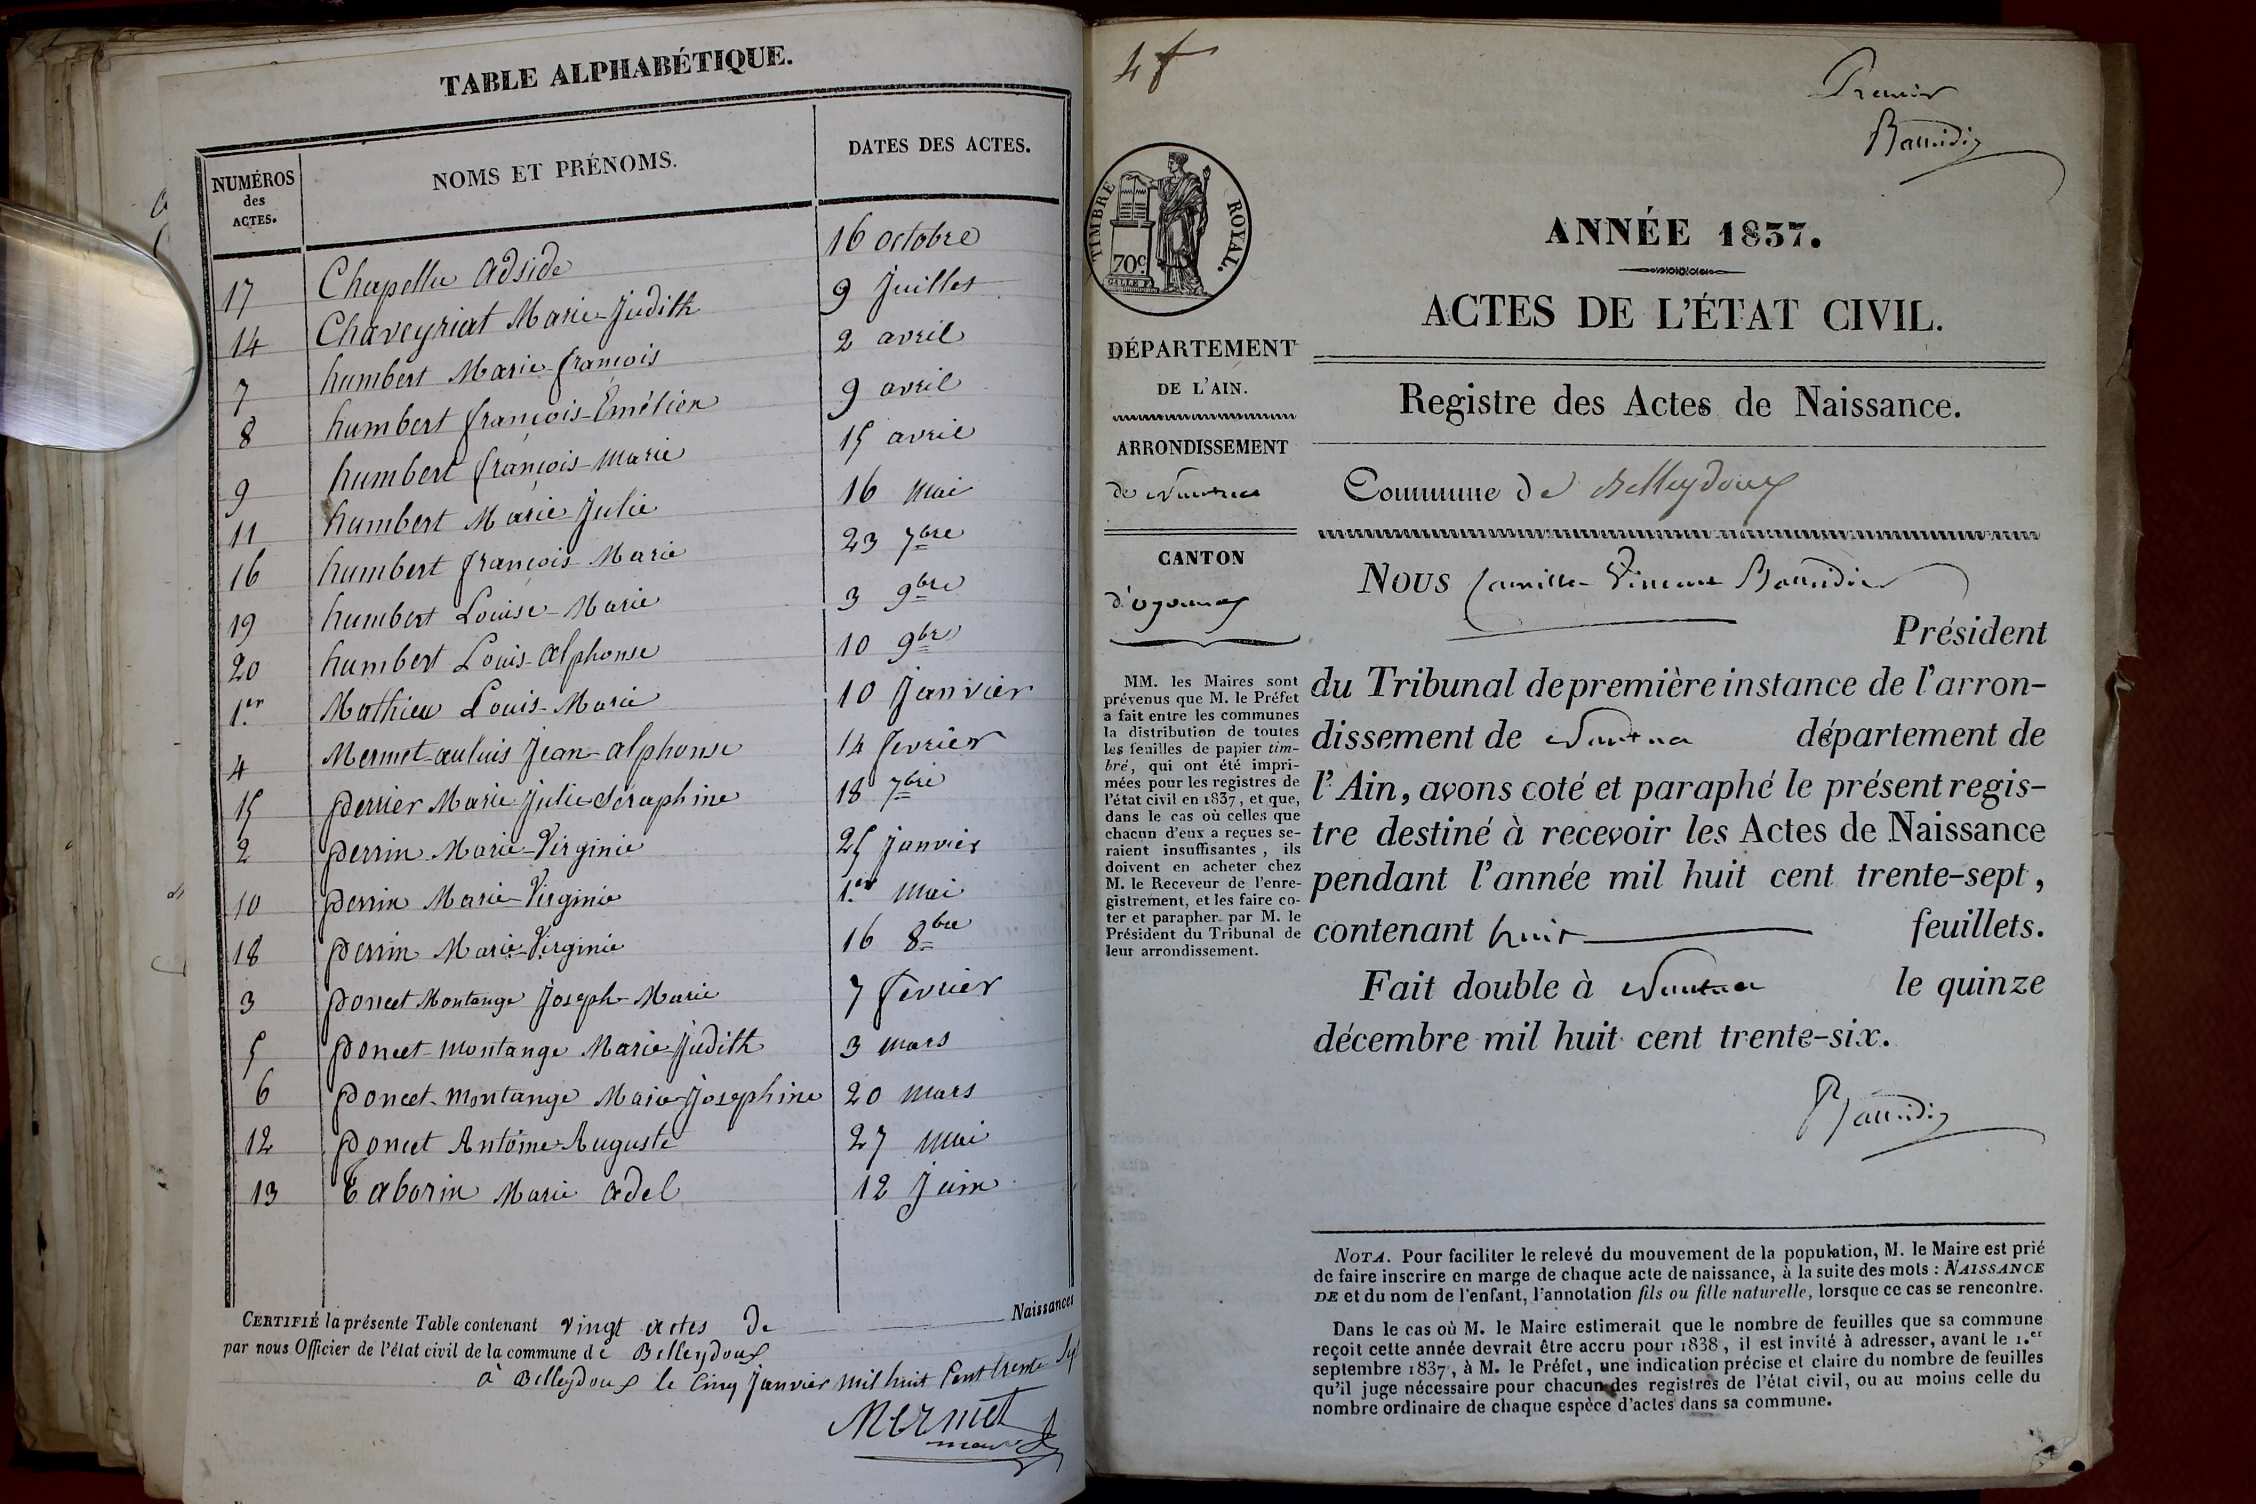 TABLE ALPHABÉTIQUE.
NUMÉROS des ACTES. NOMS ET PRÉNOMS. DATES DES ACTES.
17 Chapellu adside 16 octobre
14 Chaveyriat Marie-Judith 9 Juillet
7 humbert Marie-françois 2 avril
8 humbert françois-Émélien 9 avril
9 humbert françois-Marie 15 avril
11 humbert Marie-Julie 16 mai
16 humbert françois-Marie 23 7bre
19 humbert Louise-Marie 3 9bre
20 humbert Louis-alphonse 10 9bre
1.er Mathieu Louis-Marie 10 Janvier
4 Mermet-auluis Jean-alphonse 14 fevrier
15 perrier Marie-Julie-Séraphine 18 7bre
2 perrin Marie-Virginie 25 janvier
10 perrin Marie-Virginie 1.er mai
18 perrin Marie-Virginie 16 8bre
3 poncet Montange Joseph-Marie 7 fevrier
5 poncet-montange Marie-Judith 3 mars
6 poncet-montange Marie-Josephine 20 mars
12 poncet Antoine-Auguste 27 mai
13 Taborin Marie adel 12 Juin
CERTIFIÉ la présente Table contenant vingt actes de Naissances
par nous Officier de l'état civil de la commune de Belleydoux
à Belleydoux le cinq Janvier mil huit Cent trente
Mermet
maire
4 f
Premier
Baudin
TIMBRE ROYAL.
70c.
ANNÉE 1837.
ACTES DE L'ÉTAT CIVIL.
DÉPARTEMENT
DE L'AIN.
ARRONDISSEMENT
de Nantua
CANTON
d'oyonnax
MM. les Maires sont
prévenus que M. le Préfet
a fait entre les communes
la distribution de toutes
les feuilles de papier tim-
bré, qui ont été impri-
mées pour les registres de
l'état civil en 1837, et que,
dans le cas où celles que
chacun d'eux a reçues se-
raient insuffisantes, ils
doivent en acheter chez
M. le Receveur de l'enre-
gistrement, et les faire co-
ter et parapher par M. le
Président du Tribunal de
leur arrondissement.
Registre des Actes de Naissance.
Commune de Belleydoux
NOUS Camille-Vincent
Président
du Tribunal de première instance de l'arron-
dissement de Nantua département de
l'Ain, avons coté et paraphé le présent regis-
tre destiné à recevoir les Actes de Naissance
pendant l'année mil huit cent trente-sept,
contenant huit feuillets.
Fait double à Nantua le quinze
décembre mil huit cent trente-six.
NOTA. Pour faciliter le relevé du mouvement de la population, M. le Maire est prié
de faire inscrire en marge de chaque acte de naissance, à la suite des mots : NAISSANCE
DE et du nom de l'enfant, l'annotation fils ou fille naturelle, lorsque ce cas se rencontre.
Dans le cas où M. le Maire estimerait que le nombre de feuilles que sa commune
reçoit cette année devrait être accru pour 1838, il est invité à adresser, avant le 1.er
septembre 1837, à M. le Préfet, une indication précise et claire du nombre de feuilles
qu'il juge nécessaire pour chacun des registres de l'état civil, ou au moins celle du
nombre ordinaire de chaque espèce d'actes dans sa commune.